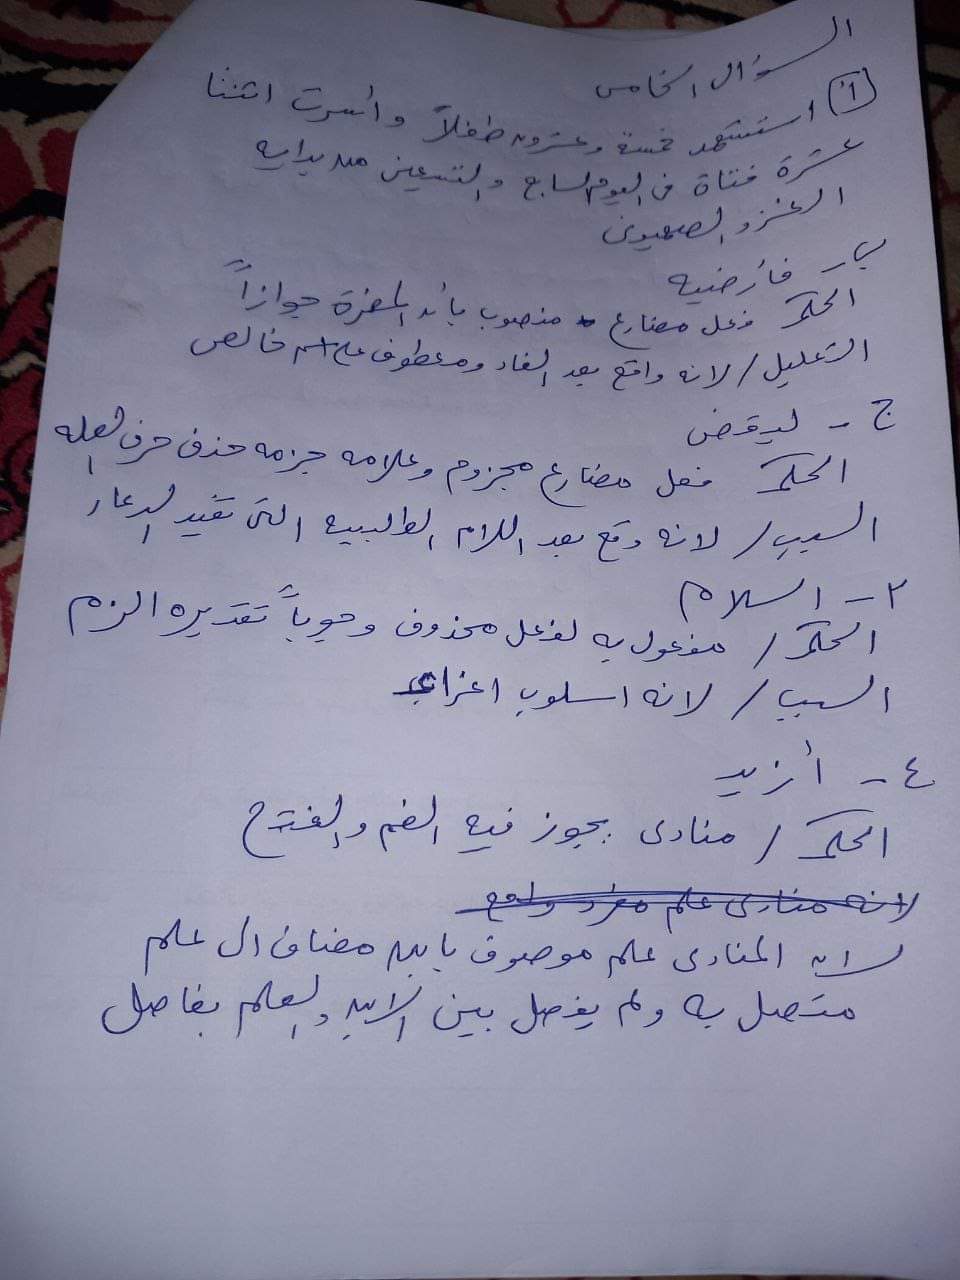 السؤال الخامس
(أ) استشهد خمسة وعشرون طفلاً وأُسرت اثنتا
عشرة فتاة في اليوم السابع والتسعين من بداية
الغزو الصهيوني
ب - فأرضيه
الحكم فعل مضارع منصوب بأن المضمرة جوازاً
التعليل / لانه واقع بعد الفاء ومعطوف على اسم خالص
ج - ليقض
الحكم فعل مضارع مجزوم وعلامه جزمه حذف حرف العله
السبب / لانه وقع بعد اللام الطلبيه التي تفيد الدعاء
٢ - السلام
الحكم / مفعول به لفعل محذوف وجوباً تقديره الزم
السبب / لانه اسلوب اغراء
٤ - أزيد
الحكم / منادى يجوز فيه الضم والفتح
لانه منادى علم مفرد
لان المنادى علم موصوف بابن مضاف الى علم
متصل به ولم يفصل بين الابن والعلم بفاصل